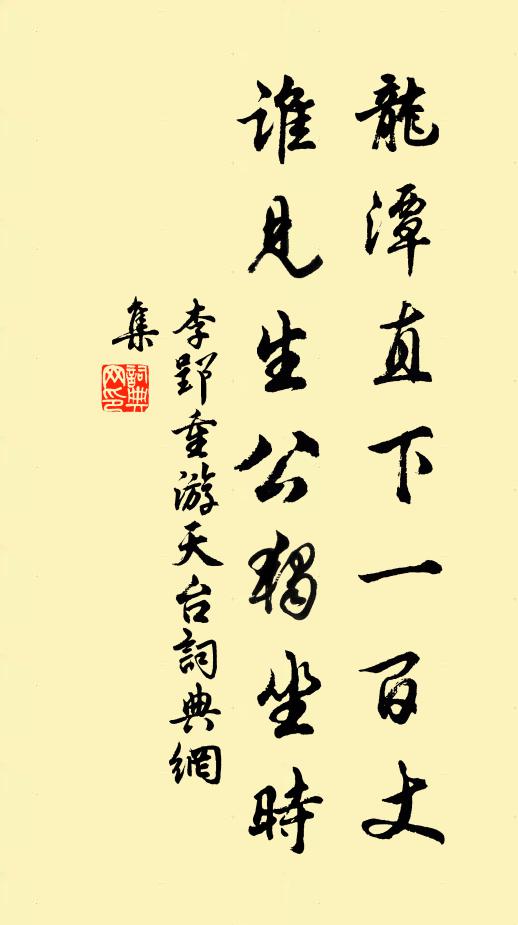 龍潭直下一百丈
誰見生公獨坐時
李郢重游天台詞典網
集
詞典网印